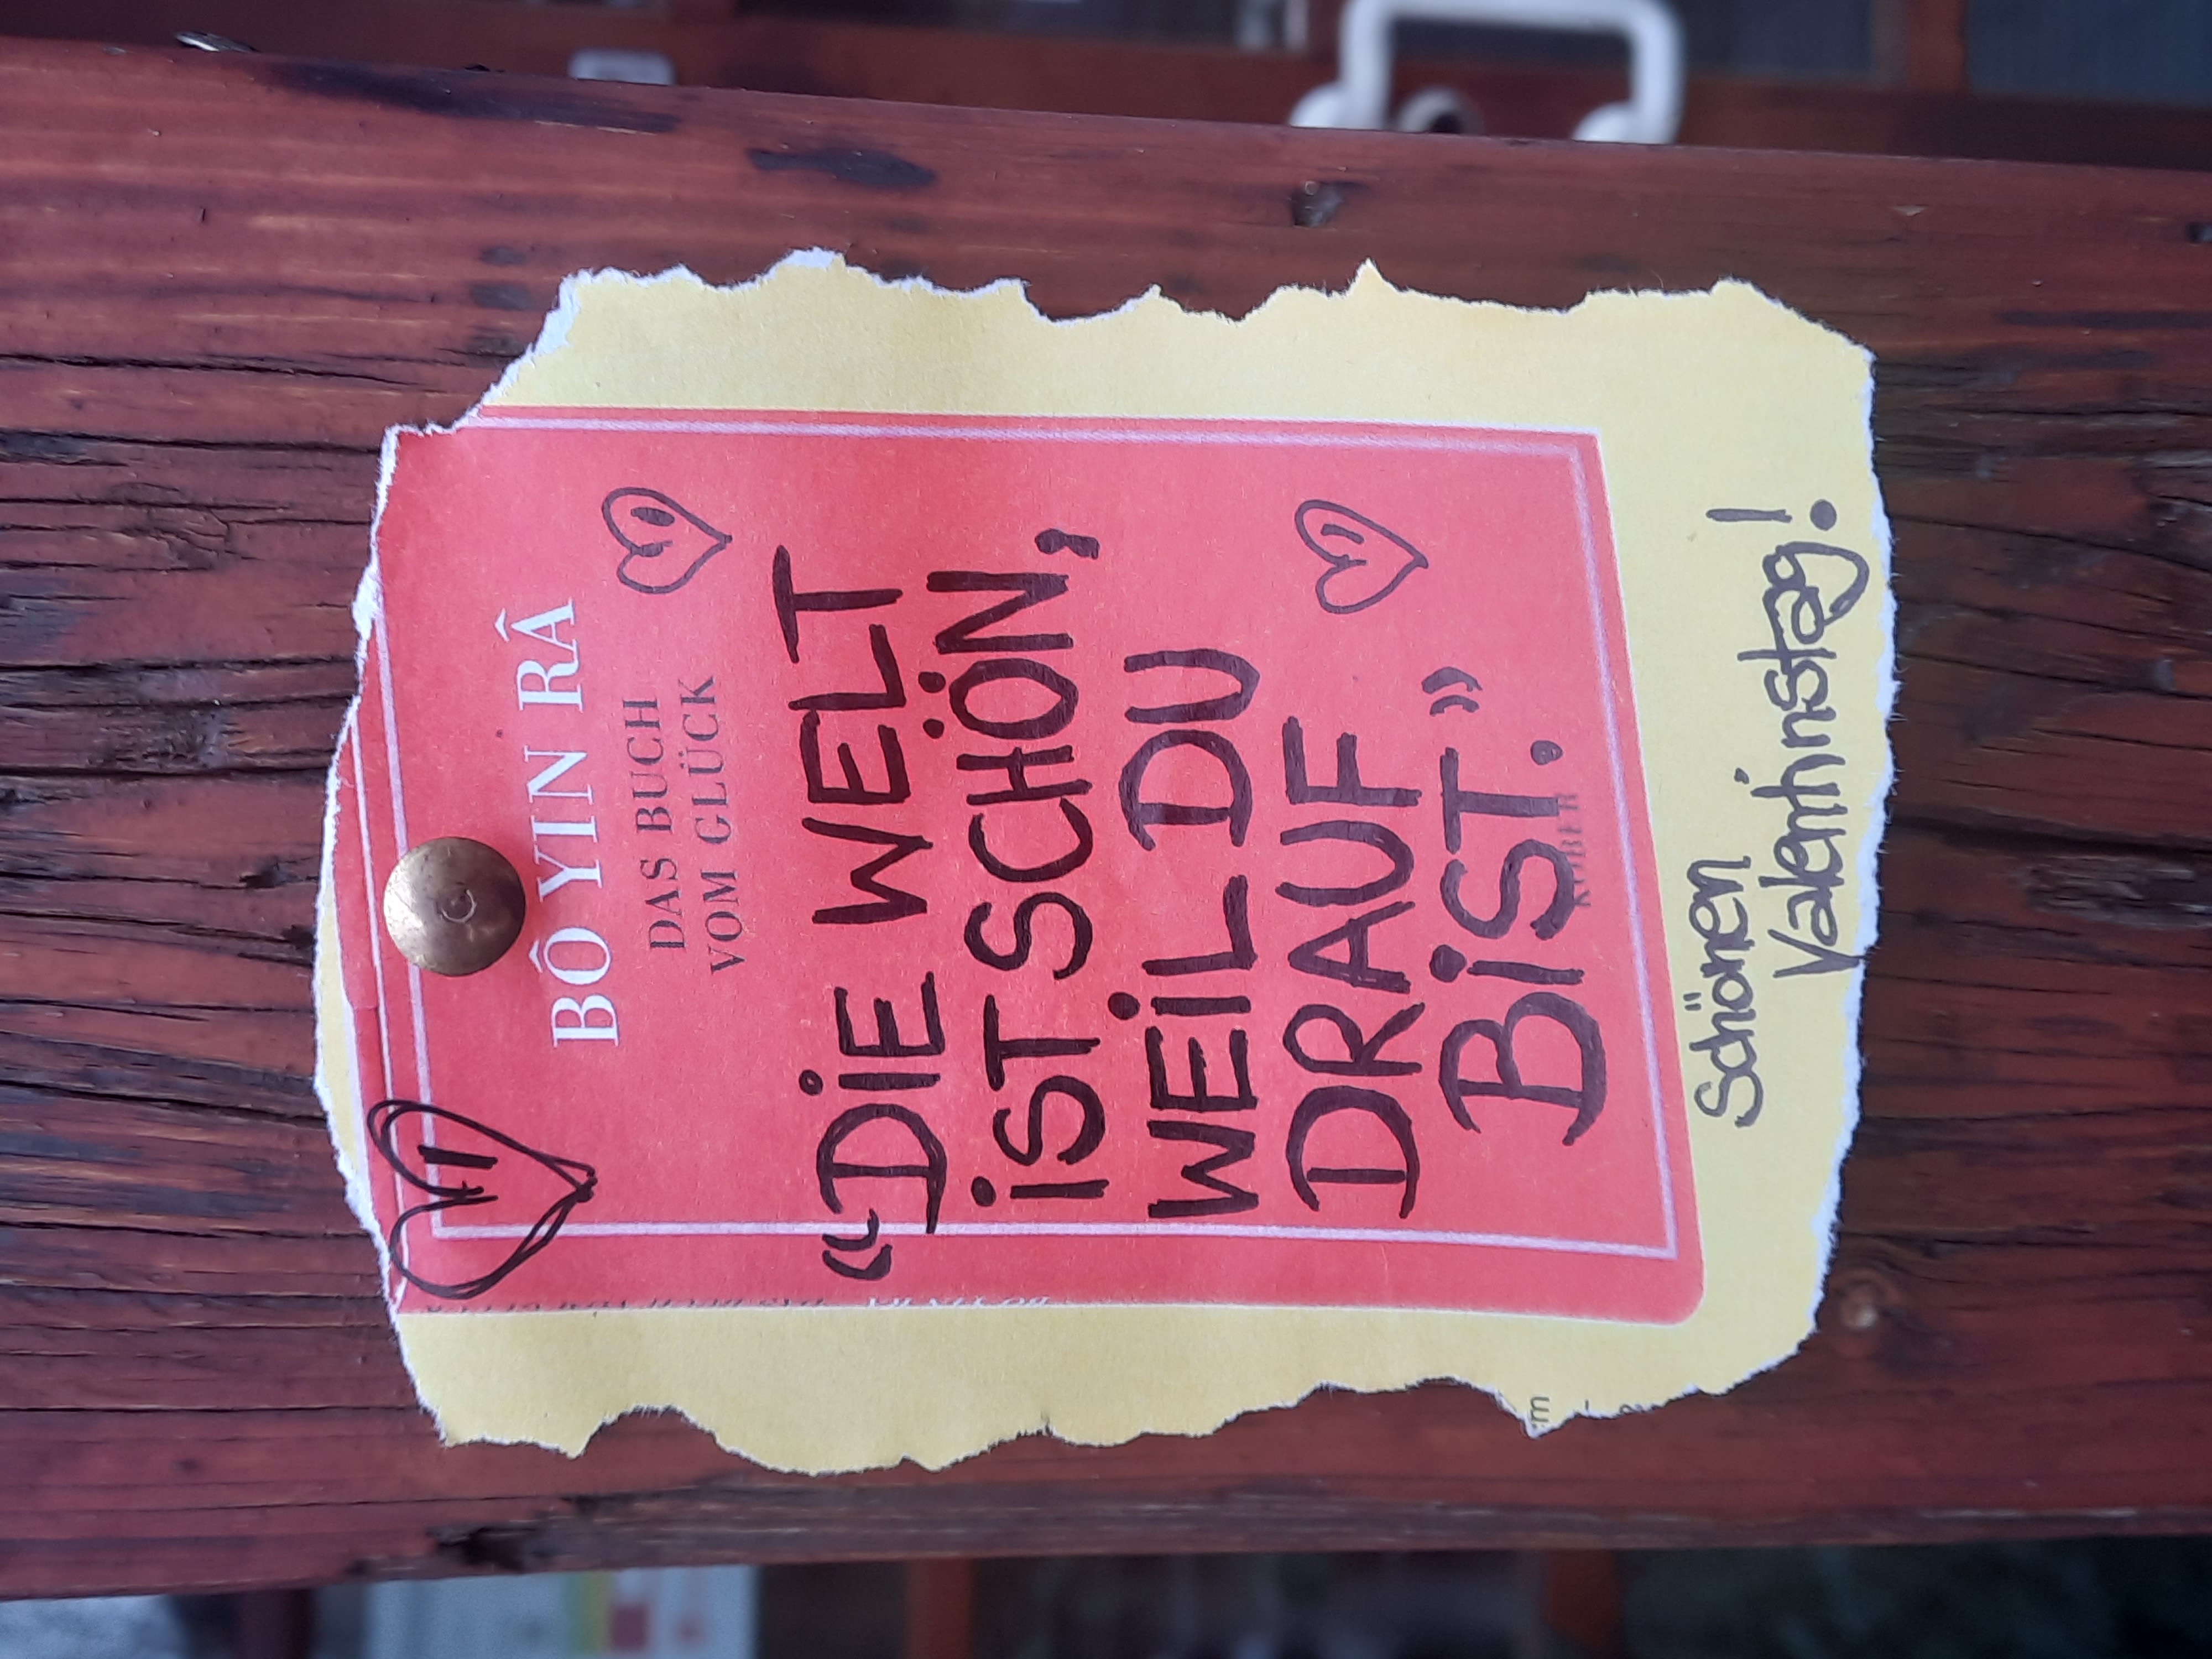 BÔ YIN RÂ
DAS BUCH
VOM GLÜCK
“DiE WELT
iST SCHÖN,
WEiL DU
DRAUF
BiST.”
KOBER
Schönen
Valentinstag!